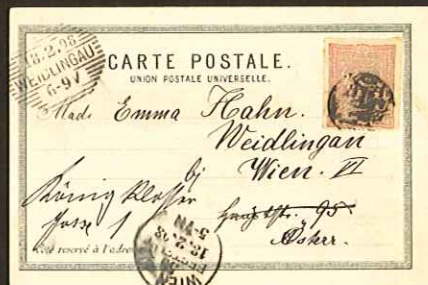 18.2.98
WEIDLINGAU
6-9V
CARTE POSTALE.
UNION POSTALE UNIVERSELLE.
Mad. Emma Hahn.
Weidlingau
bj Wien. VI
König Kloster
gasse 1
Hauptstr. 95
Österr.
Côté reservé à l'adresse
WIEN
18.2.98
5-7N